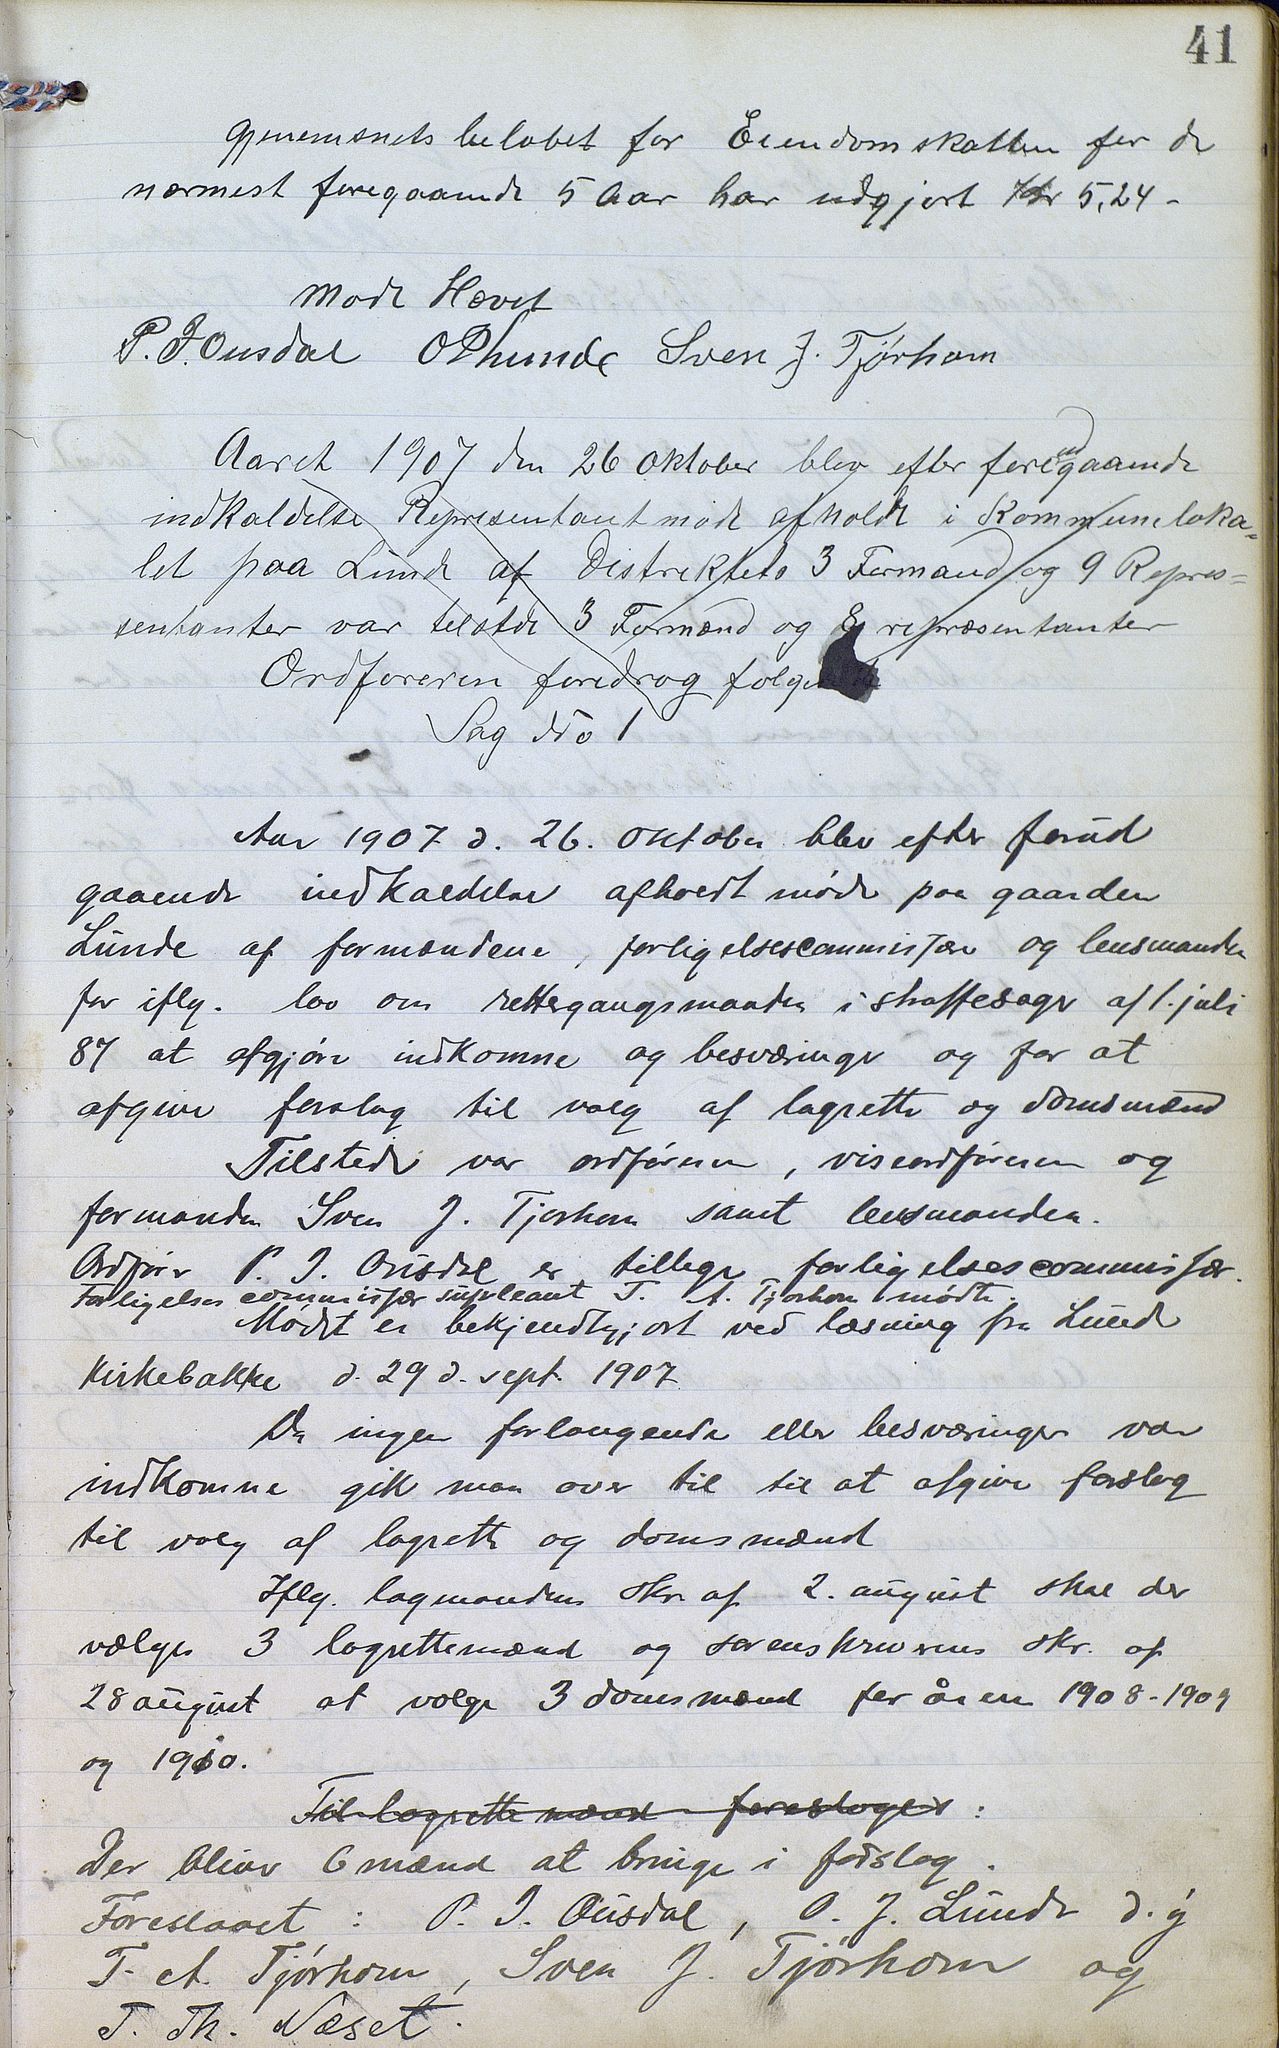 41
Gjenemsnets belobet for Eiendomskatten for de
nærmest foregaaende 5 Aar har udgjort Kr 5,24 -
Mode Hævet
P. J. Ousdal O P Lunde Sven J. Tjørhom
Aaret 1907 den 26 Oktober blev efter foregaaende
indkaldelse Representantmøde afholdt i Kommuneloka=
let paa Lunde af Distriktets 3 Formænd og 9 Repres=
sentanter var telstde 3 Formænd og 8 repræsentanter
Ordføreren foredrog følgende
Sag No 1
Aar 1907 d. 26. oktober blev efter forud
gaaende indkaldelse afholdt møde paa gaarden
Lunde af formændene, forligelsescommissær og lensmanden
for iflg. lov om rettergangsmaaden i straffesager af 1. juli
87 at afgjøre indkomne og besværinger og for at
afgive forslag til valg af lagrette og domsmænd
Tilstede var ordføreren, viseordføreren og
formanden Sven J. Tjorhom samt lensmanden.
Ordfører P. J. Ousdal er tillege forligelsescommissær.
Forligelsescommissær supleant T. A. Tjorhom mødte.
Mødet er bekjendtgjort ved læsning fra Lunde
Kirkebakke d. 29 d. sept. 1907
Da ingen forlangende eller besværinger var
indkomne gik man over til til at afgive forslag
til valg af lagrette og domsmænd
Iflg. lagmandens skr. af 2. august skal der
vælges 3 lagrettemænd og sorenskriverens skr. af
28 august at vælge 3 domsmænd for åren 1908-1909
og 1910.
Til lagrettemænd foresloges:
Der bliver 6 mænd at bringe i forslag.
Foreslaaet: P. J. Ousdal, O. J. Lunde d.y
T. A. Tjørhom, Sven J. Tjørhom og
T. Th. Næset.